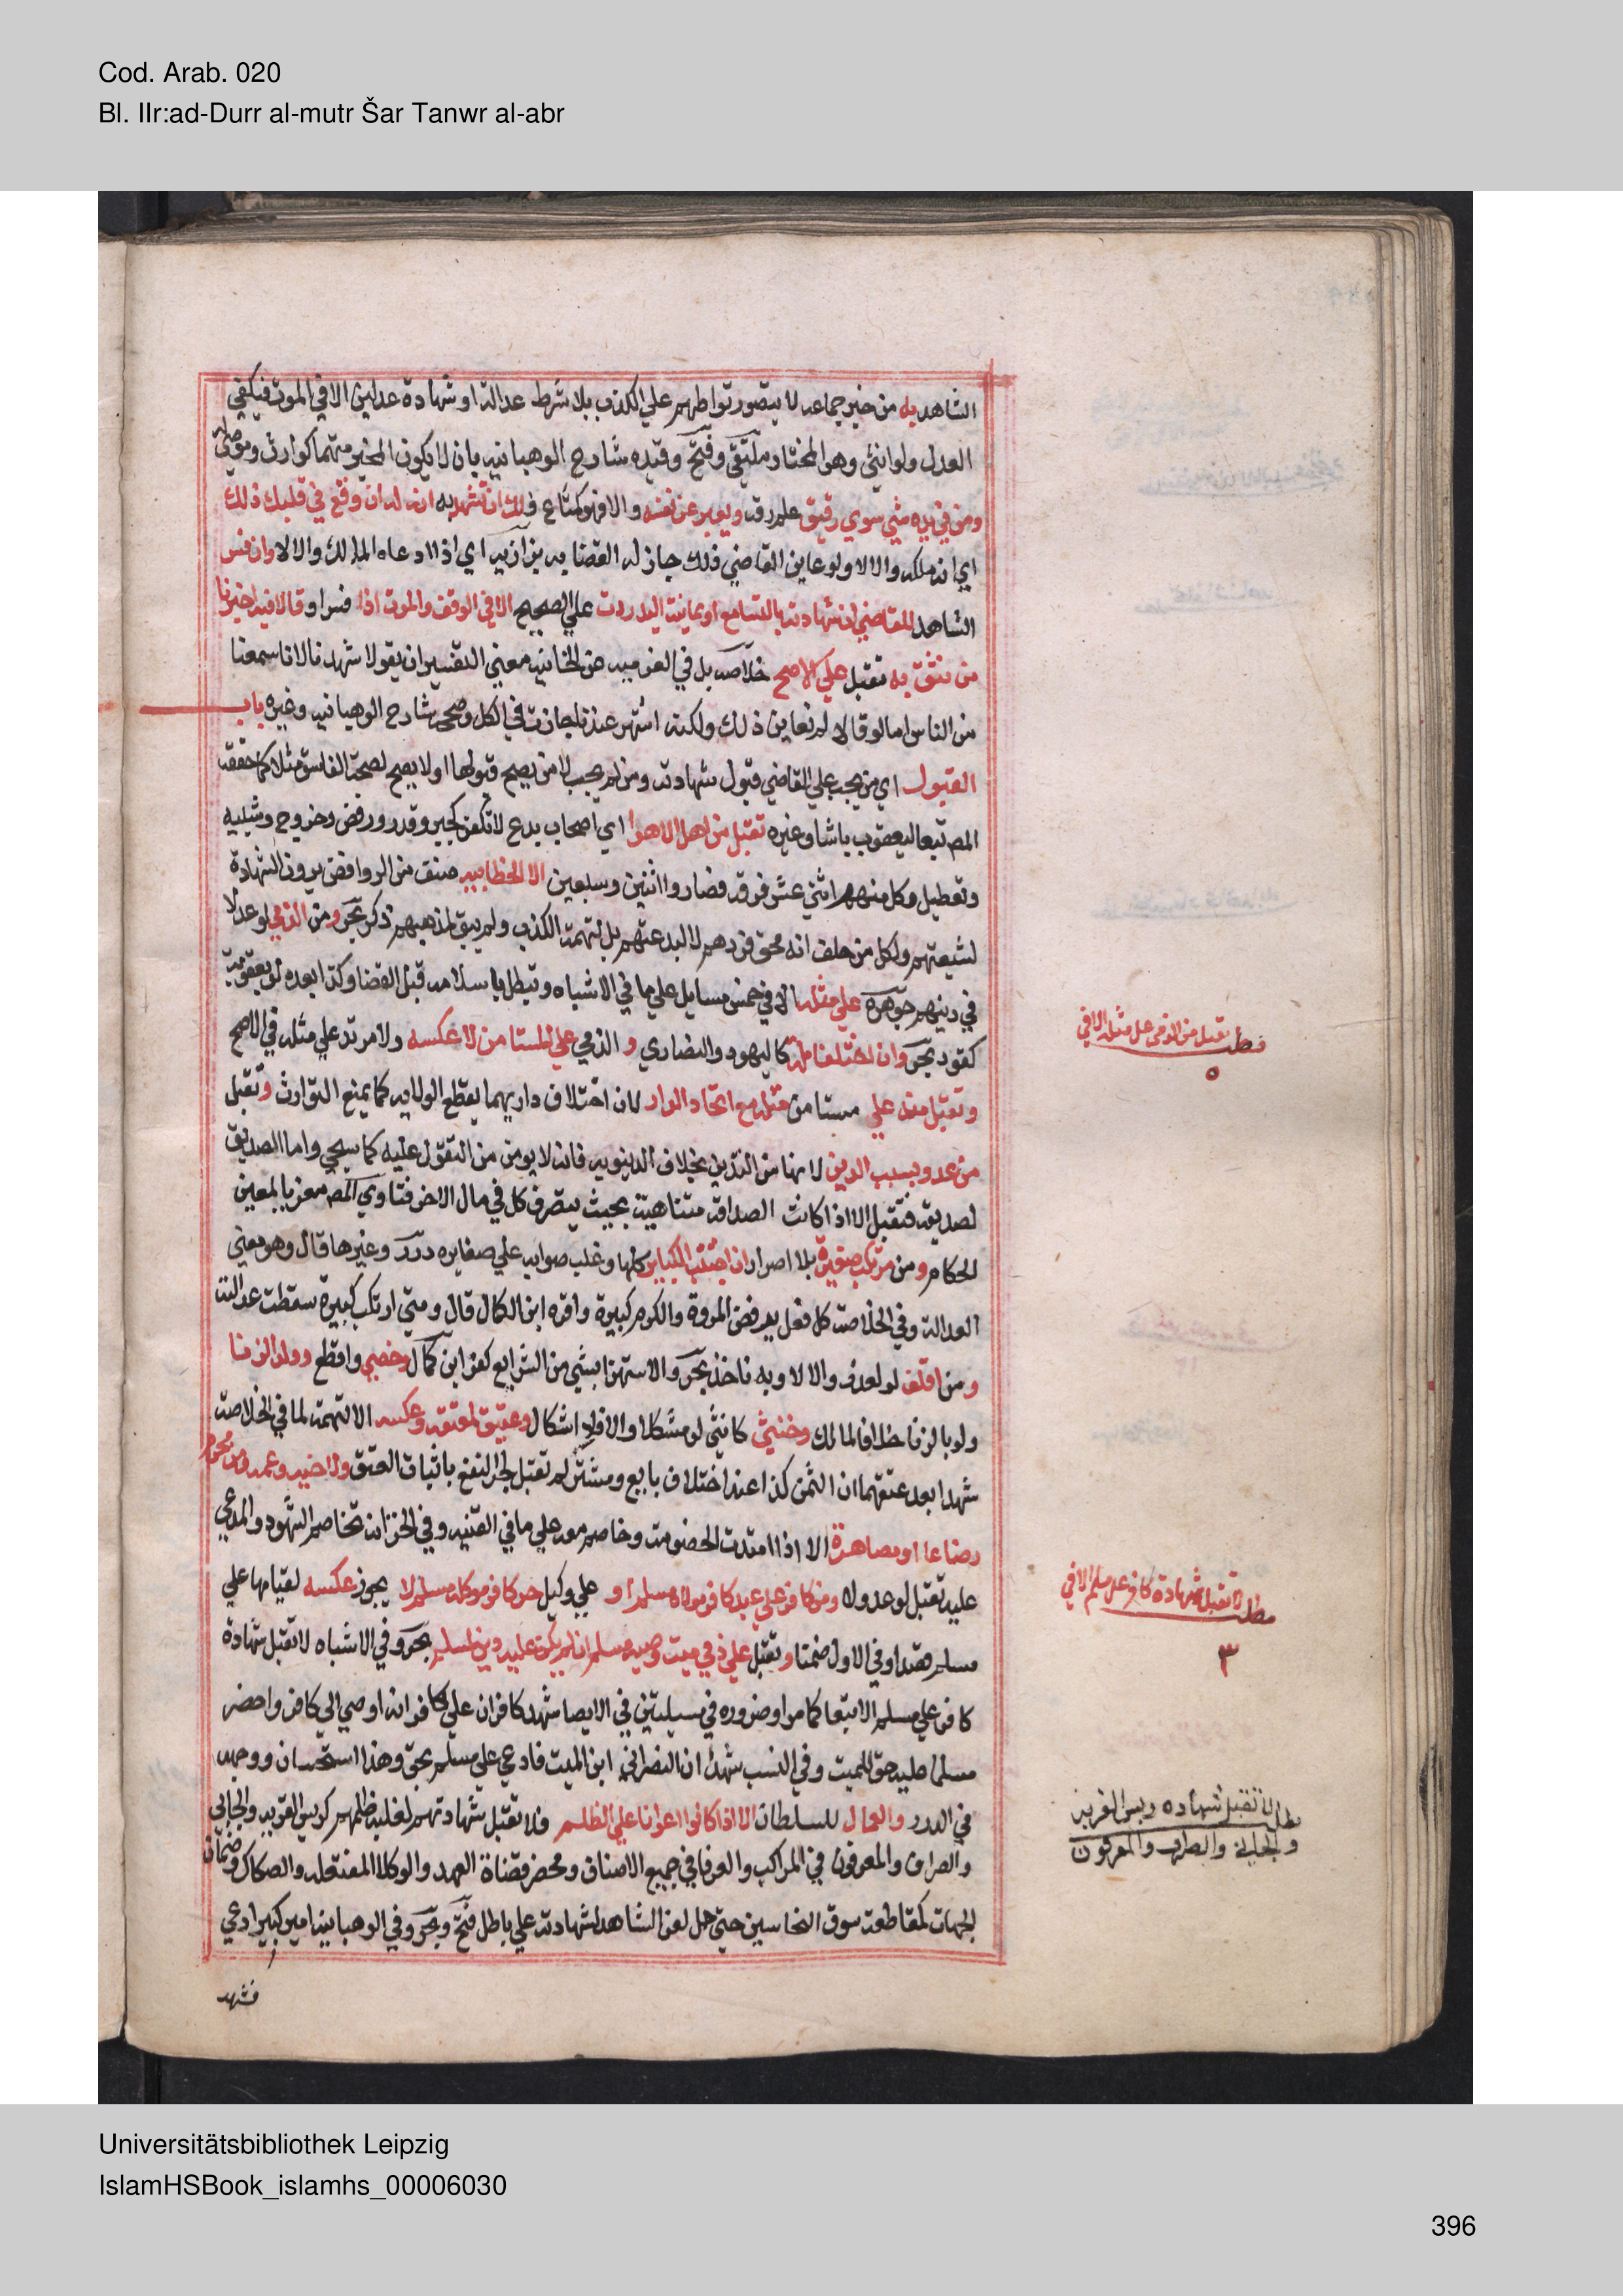 Cod. Arab. 020
Bl. IIr:ad-Durr al-mutr Šar Tanwr al-abr
الشاهد به من خبر جماعه لا يتصور تواطهم علي الكذب بلا شرط عدالة او شهادة عدلين الا في الموت فيكفي
العدل ولو انثي وهو المختار ملتقي وفتح وقيده شارح الوهبانيه بان لا يكون المخبر متهما كوارث وموصي له
ومن في يده شي سوي رقيق علم رقه ويعبر عن نفسه والا فهو كمتاع فلك ان تشهد به انه له ان وقع في قلبك ذلك
اي انه ملكه والا لا ولو عاين القاضي ذلك جاز له القضا به بزازيه اي اذا ادعاه المالك والا لا وان فسر
الشاهد للقاضي ان شهادته بالتسامع او بمعاينة اليد ردت علي الصحيح الا في الوقف والموت اذا فسرا وقالا فيه اخبرنا
من نثق به تقبل علي الاصح خلاصه بل في العزميه عن الخانيه معني التفسير ان يقولا شهدنا لانا سمعنا
من الناس اما لو قالا لم نعاين ذلك ولكنه اشتهر عندنا جازت في الكل وصححه شارح الوهبانيه وغيره باب
القبول اي من يجب علي القاضي قبول شهادته ومن لم يجب لا من يصح قبولها او لا يصح لصحة الفاسق مثلا كما حققه
المص تبعا ليعقوب باشا وغيره تقبل من اهل الاهوا اي اصحاب بدع لا تكفر كجبر وقدر ورفض وخروج وتشبيه
وتعطيل وكل منهم اثني عشر فرقه فصاروا اثنين وسبعين الا الخطابيه صنف من الروافض يرون الشهادة
لشيعتهم ولكل من حلف انه محق فردهم لا لبدعتهم بل لتهمة الكذب ولم يبق لمذهبهم ذكر بحر ومن الذمي لو عدلا
في دينهم جوهرة علي مثله الا في خمس مسايل علي ما في الاشباه وتبطل باسلامه قبل القضا وكذا بعده لو بعقوبة
كقود بحر وان اختلفا ملة كاليهود والنصاري و الذمي علي المستامن لا عكسه ولا مرتد علي مثله في الاصح
وتقبل منه علي مستامن مثله مع اتحاد الدار لان اختلاف داريهما يقطع الولايه كما يمنع التوارث وتقبل
من عدو بسبب الدين لانها من التدين بخلاف الدنيويه فانه لا يومن من التقول عليه كما سيجي واما الصديق
لصديقه فتقبل الا اذا كانت الصداقه متناهية بحيث يتصرف كل في مال الاخر فتاوي المص معزيا لمعين
الحكام ومن مرتكب صغيرة بلا اصرار ان اجتنب الكباير كلها وغلب صوابه علي صغايره درر وغيرها قال وهو معني
العدالة وفي الخلاصة كل فعل يرفض المروة والكرم كبيرة واقره ابن الكمال قال ومتي ارتكب كبيرة سقطت عدالته
ومن اقلف لو لعذر والا لا وبه ناخذ بحر والاستهزا بشي من الشرايع كفر ابن كمال وخصي واقطع وولد الزنا
ولو بالزنا خلافا لمالك وخنثي كانثي لو مشكلا والا فلا اشكال وعتيق لمعتقه وعكسه الا لتهمة لما في الخلاصة
شهدا بعد عتقهما ان الثمن كذا عند اختلاف بايع ومشتر لم تقبل لجر النفع باثبات العتق ولاخيه وعمه ومن محرم
رضاعا او مصاهرة الا اذا امتدت الخصومة وخاصم معه علي ما في القنيه وفي الخزانه تخاصم الشهود والمدعي
عليه تقبل لو عدولا ومن كافر علي عبد كافر مولاه مسلم او علي وكيل حر كافر موكله مسلم لا يجوز عكسه لقيامها علي
مسلم قصدا وفي الاول ضمنا وتقبل علي ذمي ميت وصيه مسلم ان لم يكن عليه دين لمسلم بحر وفي الاشباه لا تقبل شهادة
كافر علي مسلم الا تبعا كما مر او ضروره في مسيلتين في الايصا شهد كافران علي كافر انه اوصي الي كافر واحضر
مسلما عليه حق للميت وفي النسب شهدا ان النصراني ابن الميت فادعي علي مسلم بحق وهذا استحسان ووجهه
في الدرر والعمال للسلطان الا اذا كانوا اعوانا علي الظلم فلا تقبل شهادتهم لغلبة ظلمهم كرييس القريه والجابي
والصراف والمعرفون في المراكب والعرفا في جميع الاصناف ومحضر قضاة العهد والوكلا المفتعله والصكاك وضمان
الجهات كمقاطعة سوق النخاسين حتي حل لعن الشاهد لشهادته علي باطل فتح وبحر وفي الوهبانيه امير كبير ادعي
فشهد
مطلب تقبل من الذمي علي مثله الا في
٥
مطلب لا تقبل شهادة كافر علي مسلم الا في
٣
مطلب لا تقبل شهاده ريس القريه
والجابي والصراف والمعرفون
Universitätsbibliothek Leipzig
IslamHSBook_islamhs_00006030
396